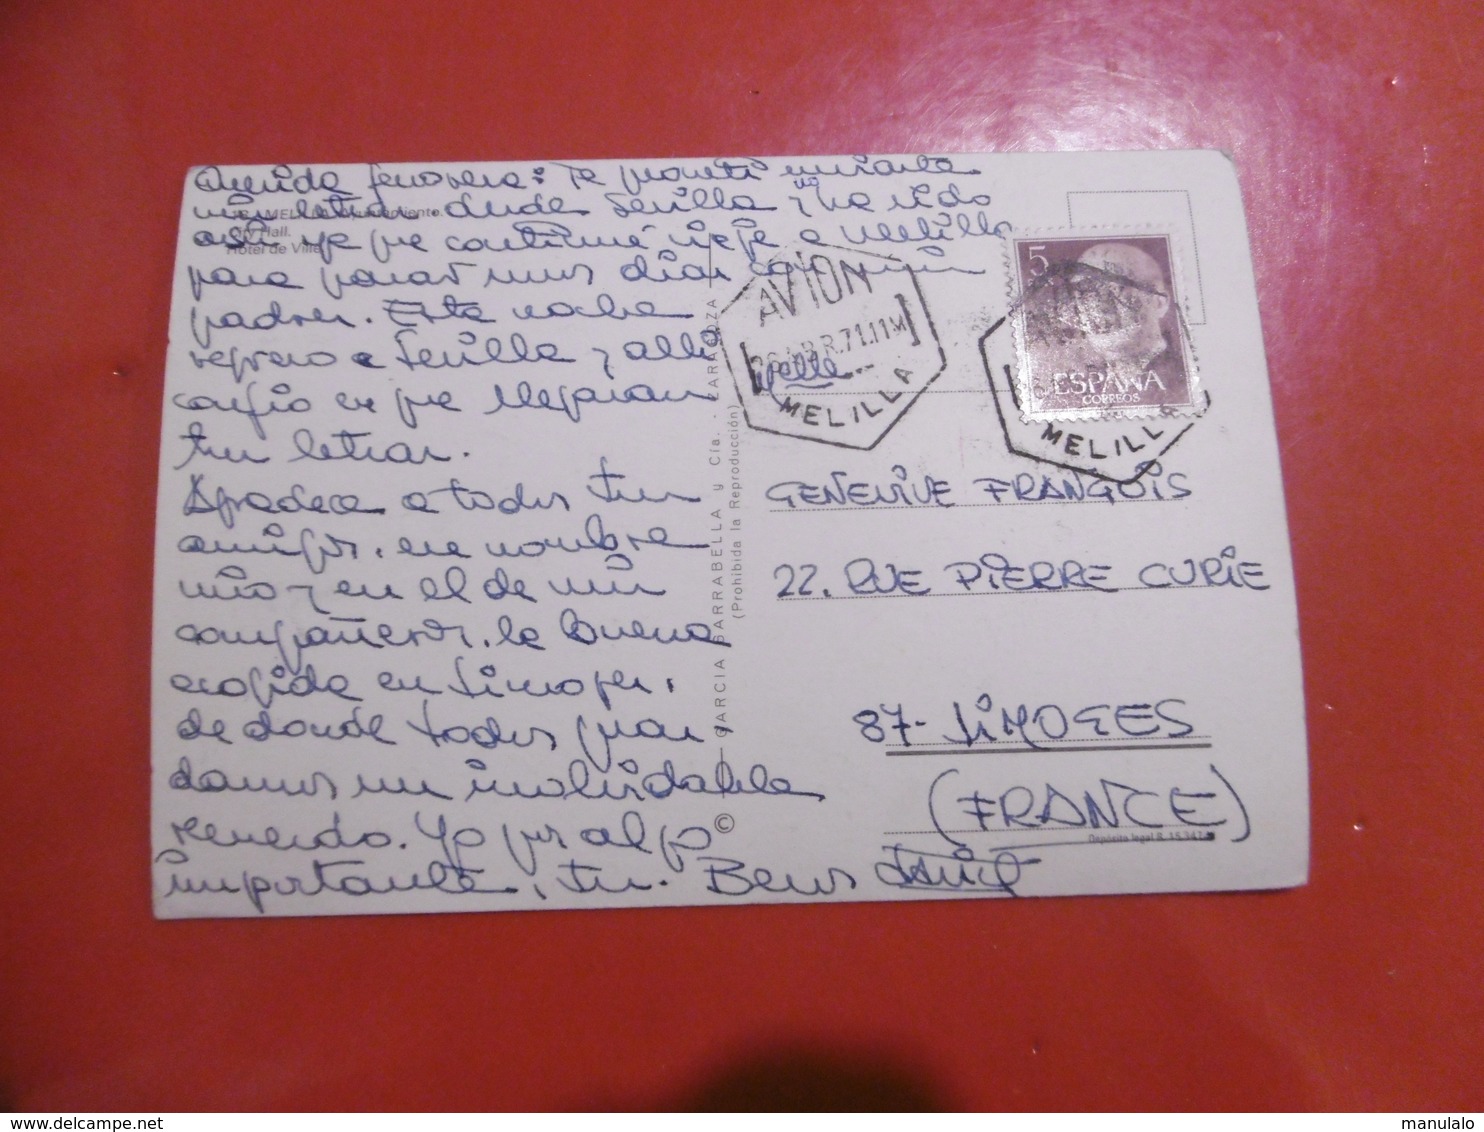 Querida Genoveva: Te prometí enviarte
mis letras desde Sevilla y no ha sido
así ya que continué viaje a Melilla
para pasar unos días con mis
padres. Esta noche
regreso a Sevilla y allí
confío en que llegarán
tus letras.
Agradece a todos tus
amigos, en nombre
mío y en el de mis
compañeros, la buena
acogida en Limoges,
de donde todos guar-
damos un inolvidable
recuerdo. Yo por algo
importante, tu. Besos
MELILLA. Ayuntamiento.
City Hall.
Hôtel de Ville
GARCIA GARRABELLA y Cía. - ZARAGOZA
(Prohibida la Reproducción)
©
AVION
ABR.71.11M
MELILLA
5
ESPAÑA
CORREOS
MELILL
GENEVIVE FRANÇOIS
22, RUE PIERRE CURIE
87- LIMOGES
(FRANCE)
Depósito legal B. 15.347
delcampe.net
manulalo